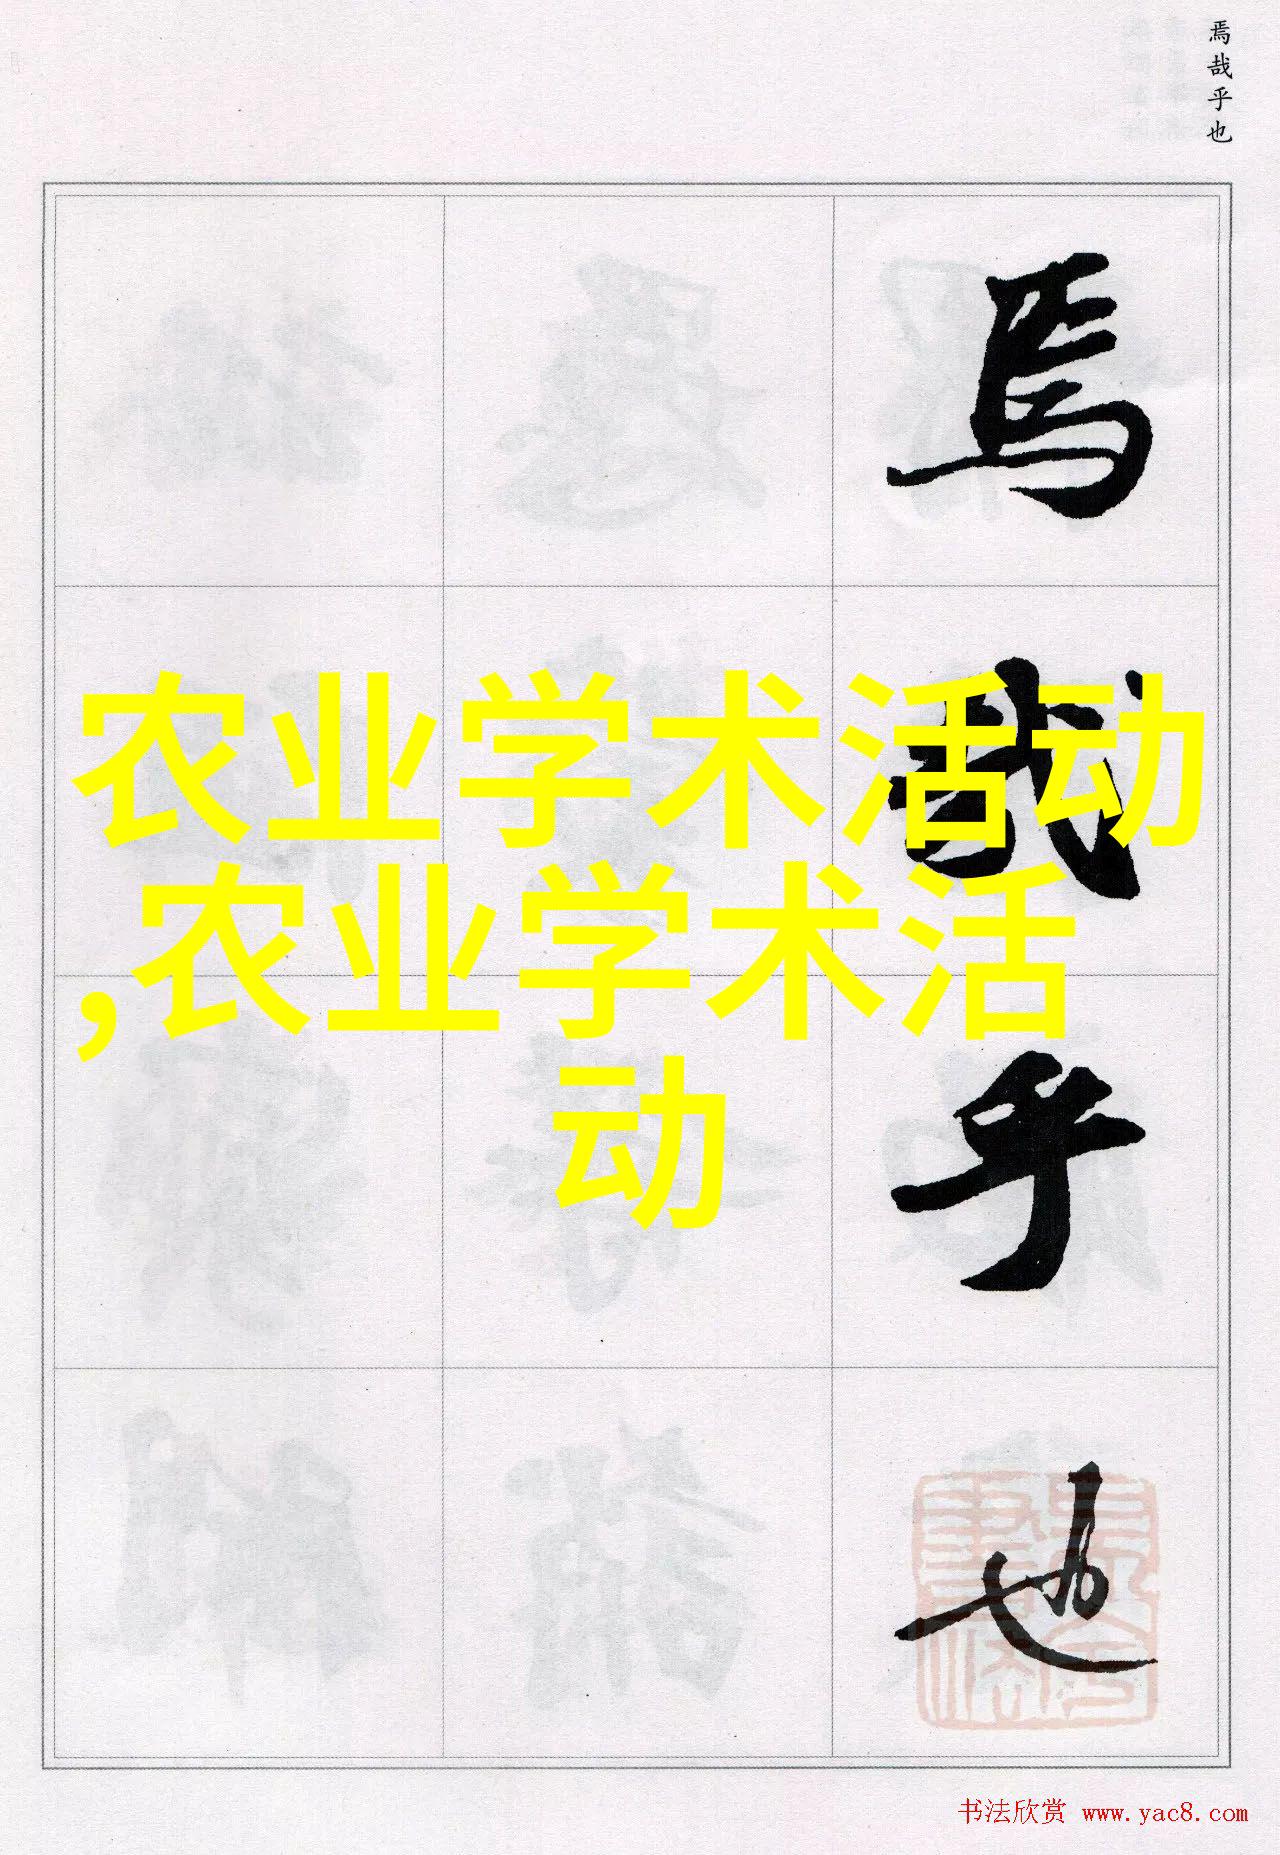 焉哉乎也
焉
哉
乎
也
农业学术活动
,农业学术活
动
书法欣赏 www.yac8.com